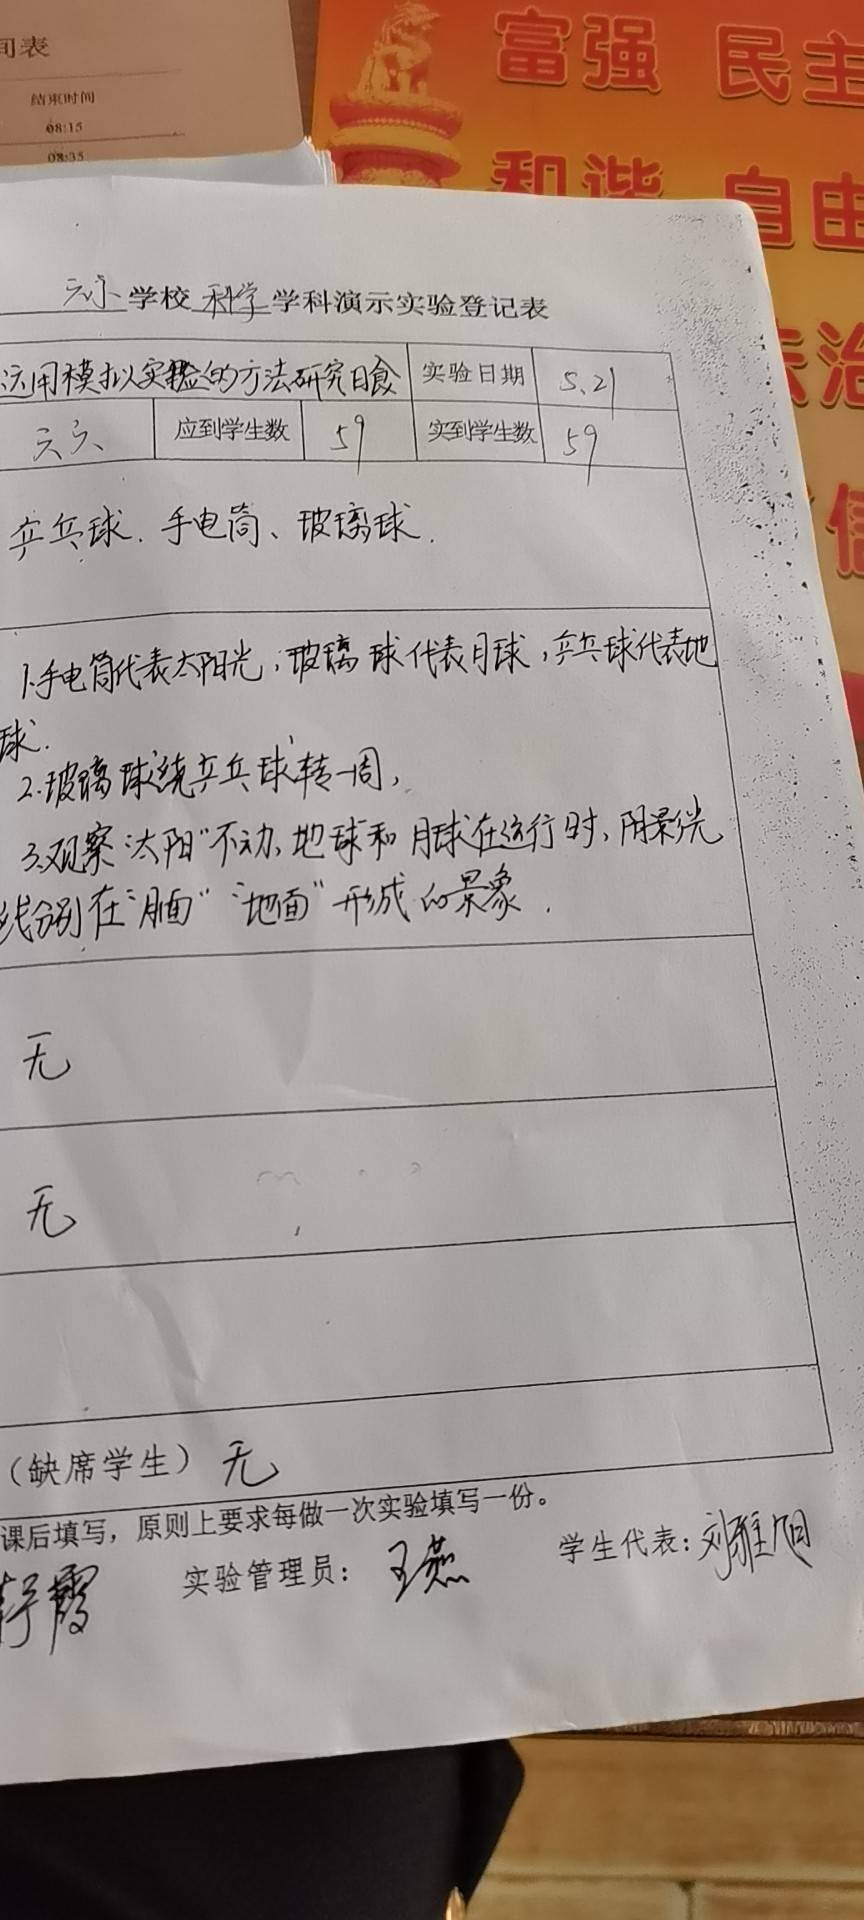 间表
结束时间
08:15
08:35
富强 民主
和谐 自由
法治
信
六小学校科学学科演示实验登记表
运用模拟实验的方法研究日食 实验日期 5.21
六六 应到学生数 59 实到学生数 59
乒乓球、手电筒、玻璃球.
1.手电筒代表太阳光,玻璃球代表月球,乒乓球代表地
球.
2.玻璃球绕乒乓球转一周,
3.观察"太阳"不动,地球和月球在运行时,阴影光
线分别在"月面" "地面"形成的景象.
无
无
(缺席学生) 无
课后填写,原则上要求每做一次实验填写一份。
霞 实验管理员: 王燕 学生代表: 刘雅旭